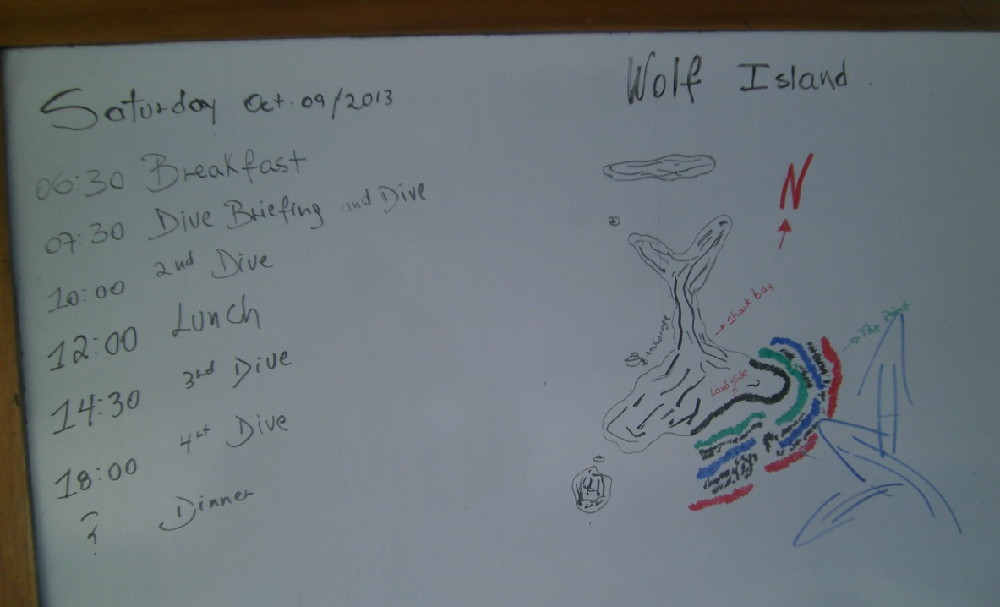 Saturday Oct. 09/2013
06:30 Breakfast
07:30 Dive Briefing and Dive
10:00 2nd Dive
12:00 Lunch
14:30 3rd Dive
18:00 4st Dive
? Dinner
Wolf Island
N
Shark bay
Anchorage
Land slide
The Point